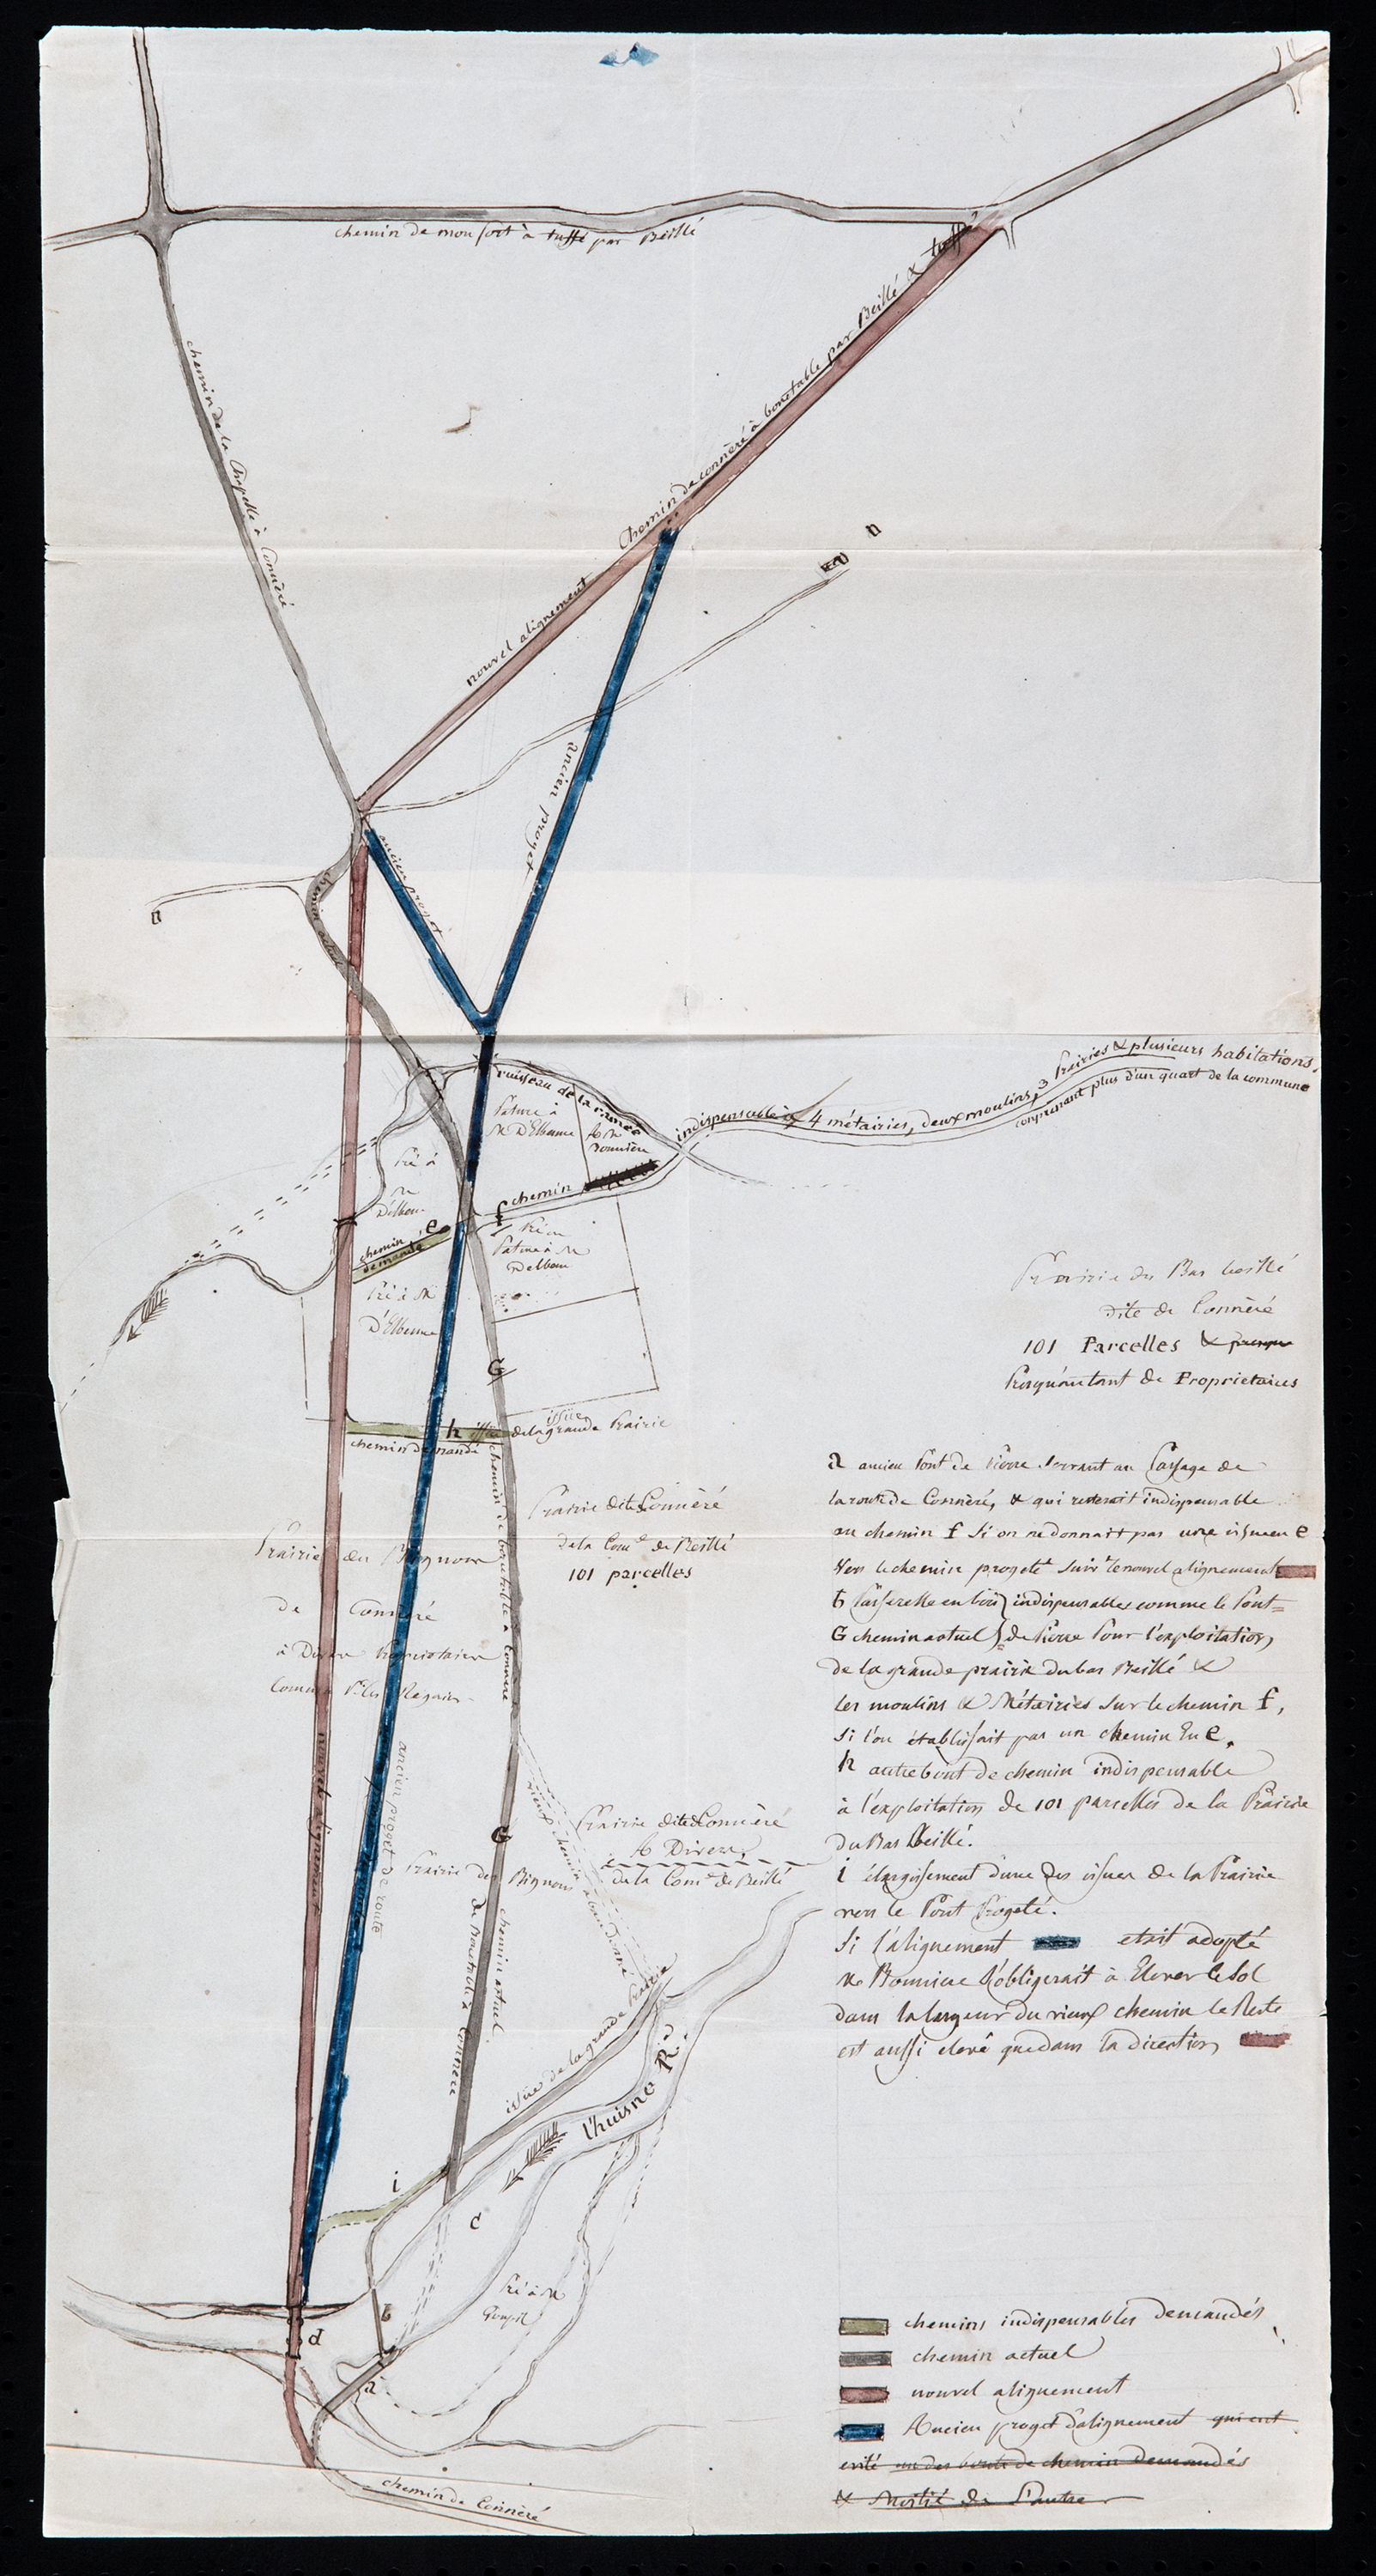 chemin de monfort à tuffé par Beillé
chemin de connèré à bonétable par Beillé & tuffé
chemin de la Chapelle à Connèré
nouvel alignement
ancien proget
ancien proget
chemin
actuel
ruisseau de la ramée
indispensable à 4 métairies, deux moulins, 3 Prairies & plusieurs habitations,
comprenant plus d'un quart de la commune
Pature à
Mr D'Elbenne
A Mr
Bonnière
chemin
f
Pré à
Mr
D'elbene
chemin e
demandé
Pré ou
Pature à Mr
Delbene
Pré à Mr
D'Elbenne
G
h issue
issüe
de la grande Prairie
chemin demandé
chemin de bonetable à Connere
Prairie dite Connèré
de la Come de Beillé
101 parcelles
Prairie du Bignon
de Connèré
à Divers Propriétaires
nouvel alignement
ancien proget de route
G
vieux chemin abandonné
Prairie dite Connèré
A Divers
de la Come de Beillé
Prairie des Bignons
chemin actuel
de Bonetable à Connere
issüe de la grande Prairie
l'huisne Re
i
c
Pré à Mr
b
d
a
chemin de Connèré
Prairie du Bas beillé
dite de Connèré
101 Parcelles & presque
Presqu'autant de Proprietaires
a ancien Pont de Pierre servant au Passage de
la route de Connèré, & qui resterait indispensable
au chemin f si on ne donnait pas une issue en e
Vers le chemin progeté suivt le nouvel alignement
b Passerelle en bois } indispensables comme le Pont=
G chemin actuel } de Pierre Pour l'exploitation
de la grande prairie du bas Beillé &
les moulins & Métairies sur le chemin f,
si l'on établissait pas un chemin En e.
h autre bout de chemin indispensable
à l'exploitation de 101 parcelles de la Prairie
du Bas Beillé.
i élargissement d'une des issues de la Prairie
vers le Pont Progeté.
Si l'alignement etait adopté
Mr Bonniere s'obligerait à Elever le Sol
dans la largeur du vieux chemin le Reste
est aussi elevé que dans la direction
chemins indispensables demandés
chemin actuel
nouvel alignement
Ancien proget d'alignement qui eut
evité un des bouts de chemin demandés
& Moitié de l'autre